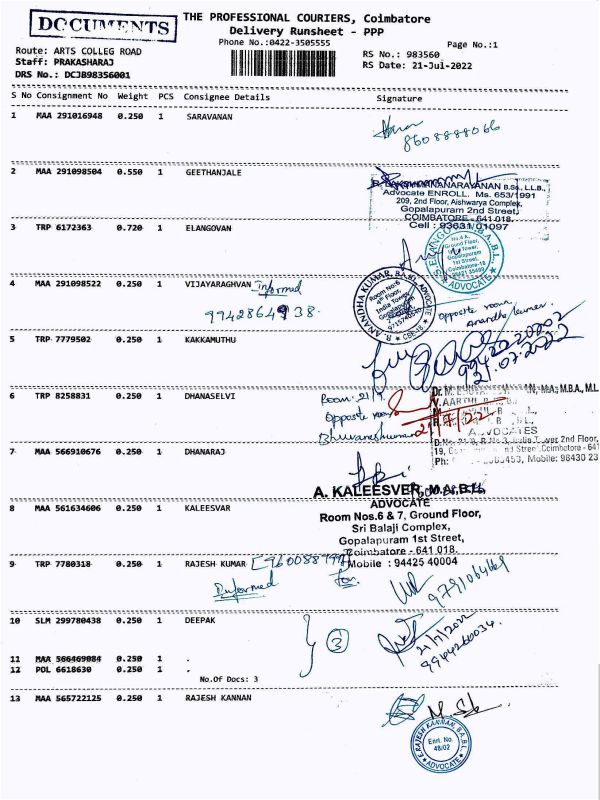 DOCUMENTS
THE PROFESSIONAL COURIERS, Coimbatore
Delivery Runsheet - PPP
Phone No.:0422-3505555
Page No.:1
Route: ARTS COLLEG ROAD
Staff: PRAKASHARAJ
DRS No.: DCJB98356001
RS No.: 983560
RS Date: 21-Jul-2022
S No Consignment No Weight PCS Consignee Details Signature
1 MAA 291016948 0.250 1 SARAVANAN
8608888066
2 MAA 291098504 0.550 1 GEETHANJALE
Advocate ENROLL. Ms. 653/1991
209, 2nd Floor, Aishwarya Complex,
Gopalapuram 2nd Street,
COIMBATORE - 641 018.
Cell : 93631/01097
3 TRP 6172363 0.720 1 ELANGOVAN
4 MAA 291098522 0.250 1 VIJAYARAGHVAN Informed
9942864938.
R. ANANDHA KUMAR, B.A.,B.L., ADVOCATE
Room No:6
4th Floor,
India Tower,
Gopalapuram
CBE-18
opposite room
Anandha kumar.
5 TRP 7779502 0.250 1 KAKKAMUTHU
6 TRP 8258831 0.250 1 DHANASELVI
Room.
opposite room
21/7/22
ADVOCATES
7 MAA 566910676 0.250 1 DHANARAJ
A. KALEESVER, M.A,B.L.,
ADVOCATE
Room Nos.6 & 7, Ground Floor,
Sri Balaji Complex,
Gopalapuram 1st Street,
Coimbatore - 641 018.
Mobile : 94425 40004
8 MAA 561634606 0.250 1 KAALEESVAR
9 TRP 7780318 0.250 1 RAJESH KUMAR
Informed
10 SLM 299780438 0.250 1 DEEPAK
3
21/7/2022
9944260034.
11 MAA 566469084 0.250 1 .
12 POL 6618630 0.250 1 .
No.Of Docs: 3
13 MAA 565722125 0.250 1 RAJESH KANNAN
F. RAJESH KANNAN, B.A.,B.L.
Enrl. No.
48/02
ADVOCATE